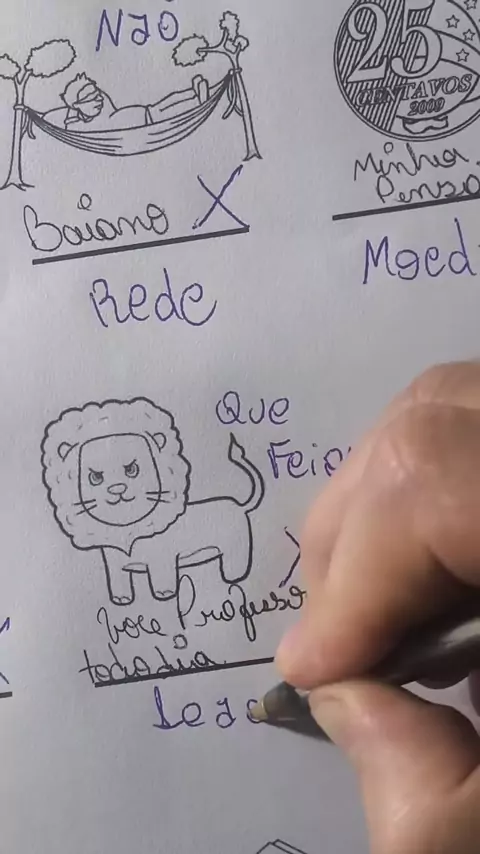 NÃO
25
CENTAVOS
2009
Baiano X
Minha
Penso
Rede
Moed
Que
Feio
Voce Profeso
todo dia
Leão